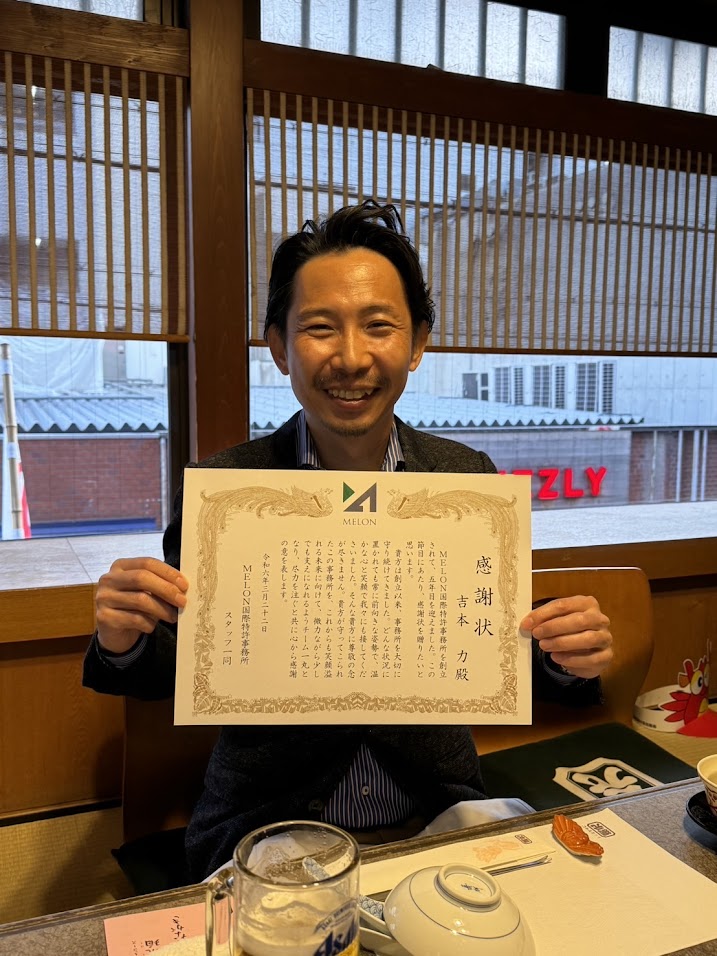 MELON
感謝状
吉本 力殿
MELON国際特許事務所を創立
されて、五年目を迎えました。この
節目にあたり、感謝状を贈りたいと
思います。
貴方は創立以来、事務所を大切に
守り続けてきました。どんな状況に
置かれても常に前向きな姿勢で、温
かな心と笑顔で我々にも接してくだ
さいました。そんな貴方に尊敬の念
が尽きません。貴方が守ってこられ
たこの事務所を、これからも笑顔溢
れる未来に向けて、微力ながら少し
でも支えになれるようチーム一丸と
なり、尽力を注ぐと共に心から感謝
の意を表します。
令和六年三月二十二日
MELON国際特許事務所
スタッフ一同
ZZLY
Asahi